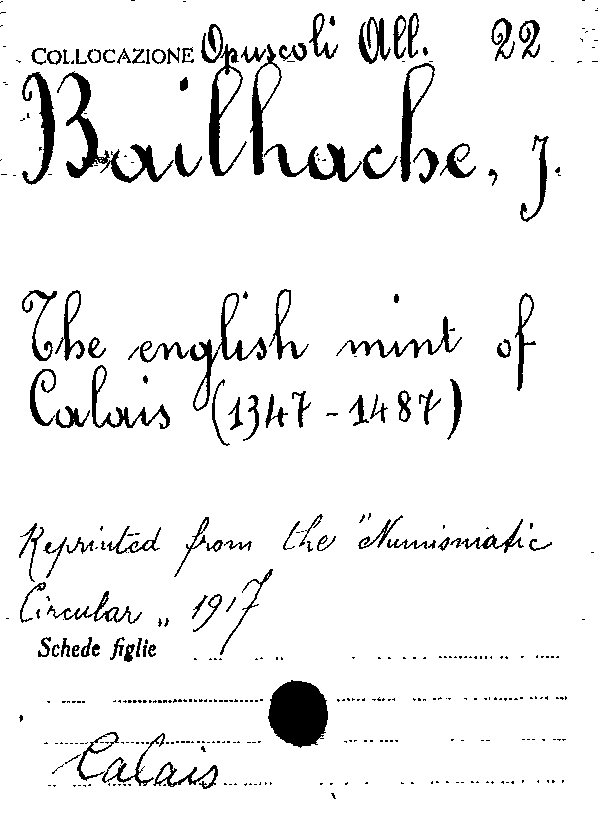 COLLOCAZIONE Opuscoli All. 22
Bailhache, J.
The english mint of
Calais (1347-1487)
Reprinted from the "Numismatic
Circular „ 1917
Schede figlie
Calais